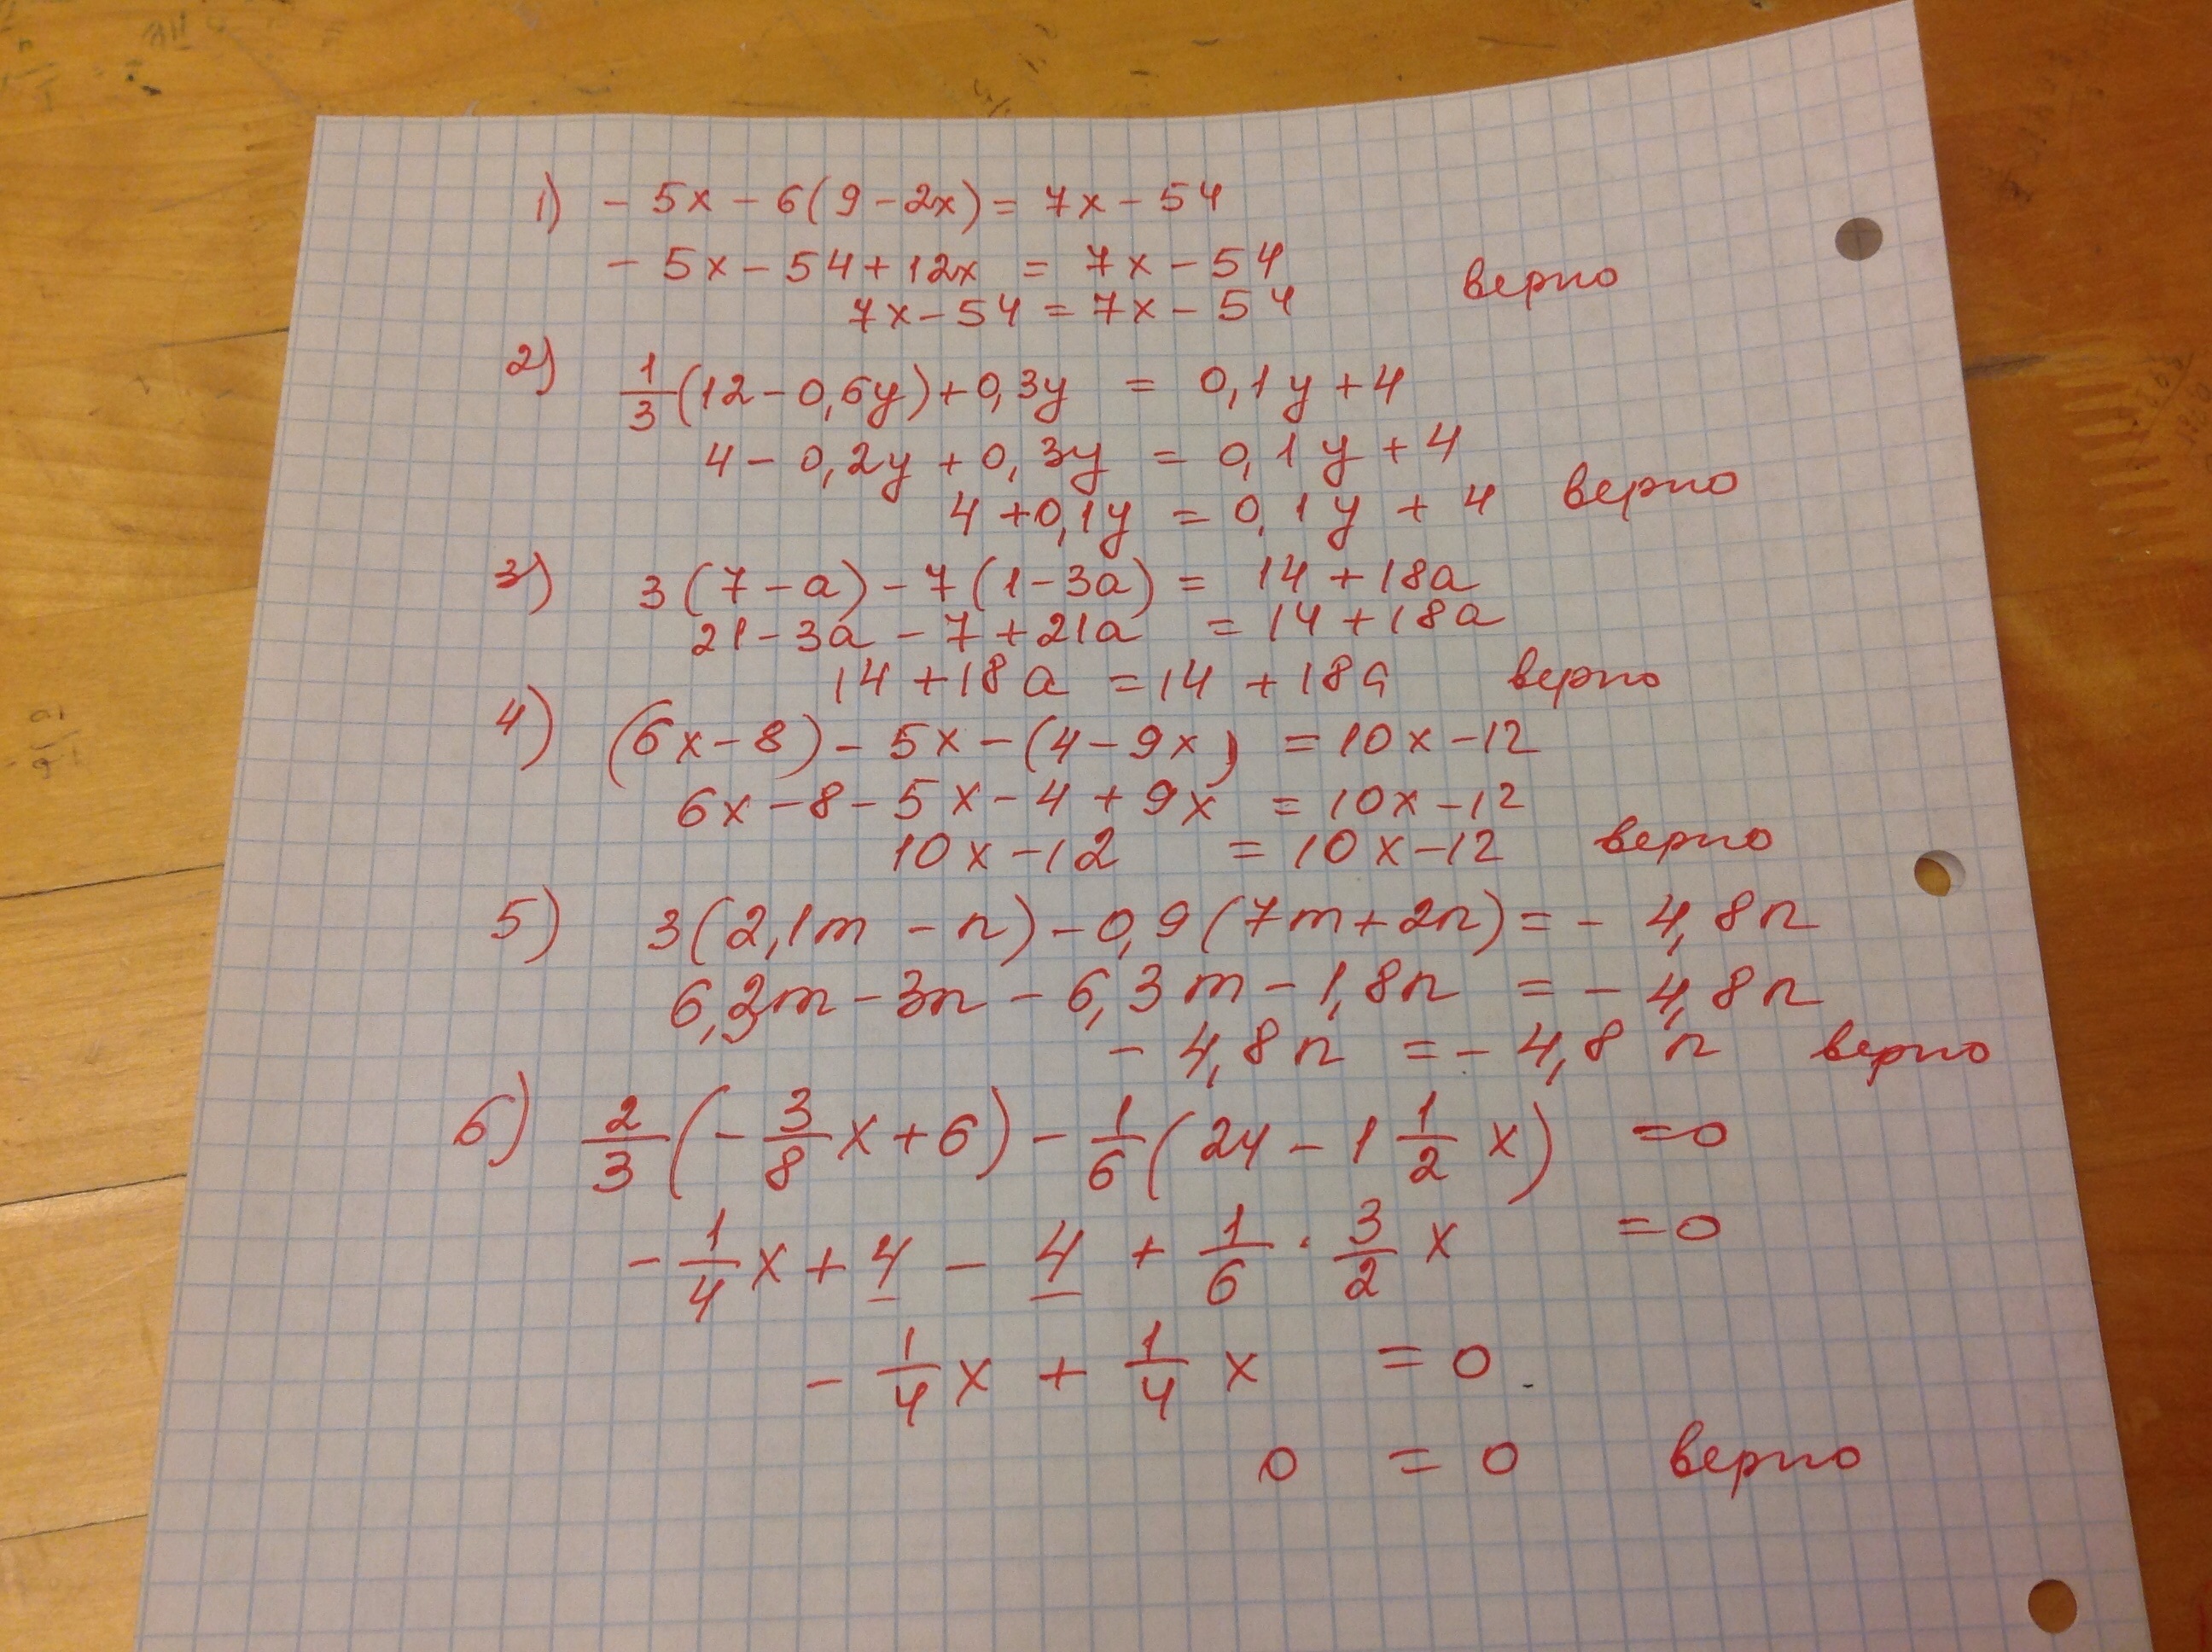 1) - 5x - 6(9 - 2x) = 7x - 54
- 5x - 54 + 12x = 7x - 54
верно
7x - 54 = 7x - 54
2) 1/3(12 - 0,6y) + 0,3y = 0,1y + 4
4 - 0,2y + 0,3y = 0,1y + 4
4 + 0,1y = 0,1y + 4 верно
3) 3(7 - a) - 7(1 - 3a) = 14 + 18a
21 - 3a - 7 + 21a = 14 + 18a
14 + 18a = 14 + 18a верно
4) (6x - 8) - 5x - (4 - 9x) = 10x - 12
6x - 8 - 5x - 4 + 9x = 10x - 12
10x - 12 = 10x - 12 верно
5) 3(2,1m - n) - 0,9(7m + 2n) = - 4,8n
6,3m - 3n - 6,3m - 1,8n = - 4,8n
- 4,8n = - 4,8n верно
6) 2/3(- 3/8 x + 6) - 1/6(24 - 1 1/2 x) = 0
- 1/4 x + 4 - 4 + 1/6 · 3/2 x = 0
- 1/4 x + 1/4 x = 0
0 = 0 верно